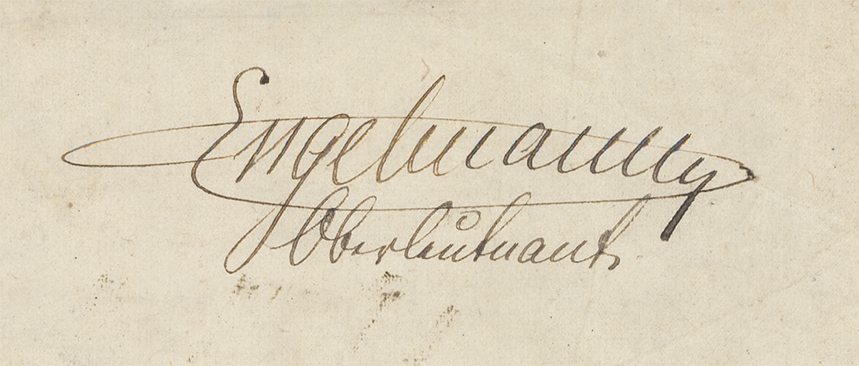 Engelmann
Oberleutnant.